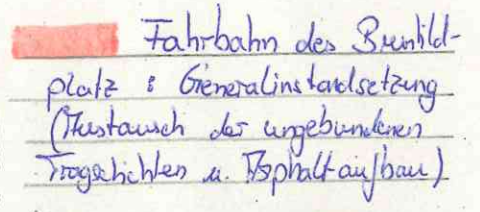 Fahrbahn des Brunhild-
platz : Generalinstandsetzung
(Austausch der ungebundenen
Tragschichten u. Asphaltaufbau)